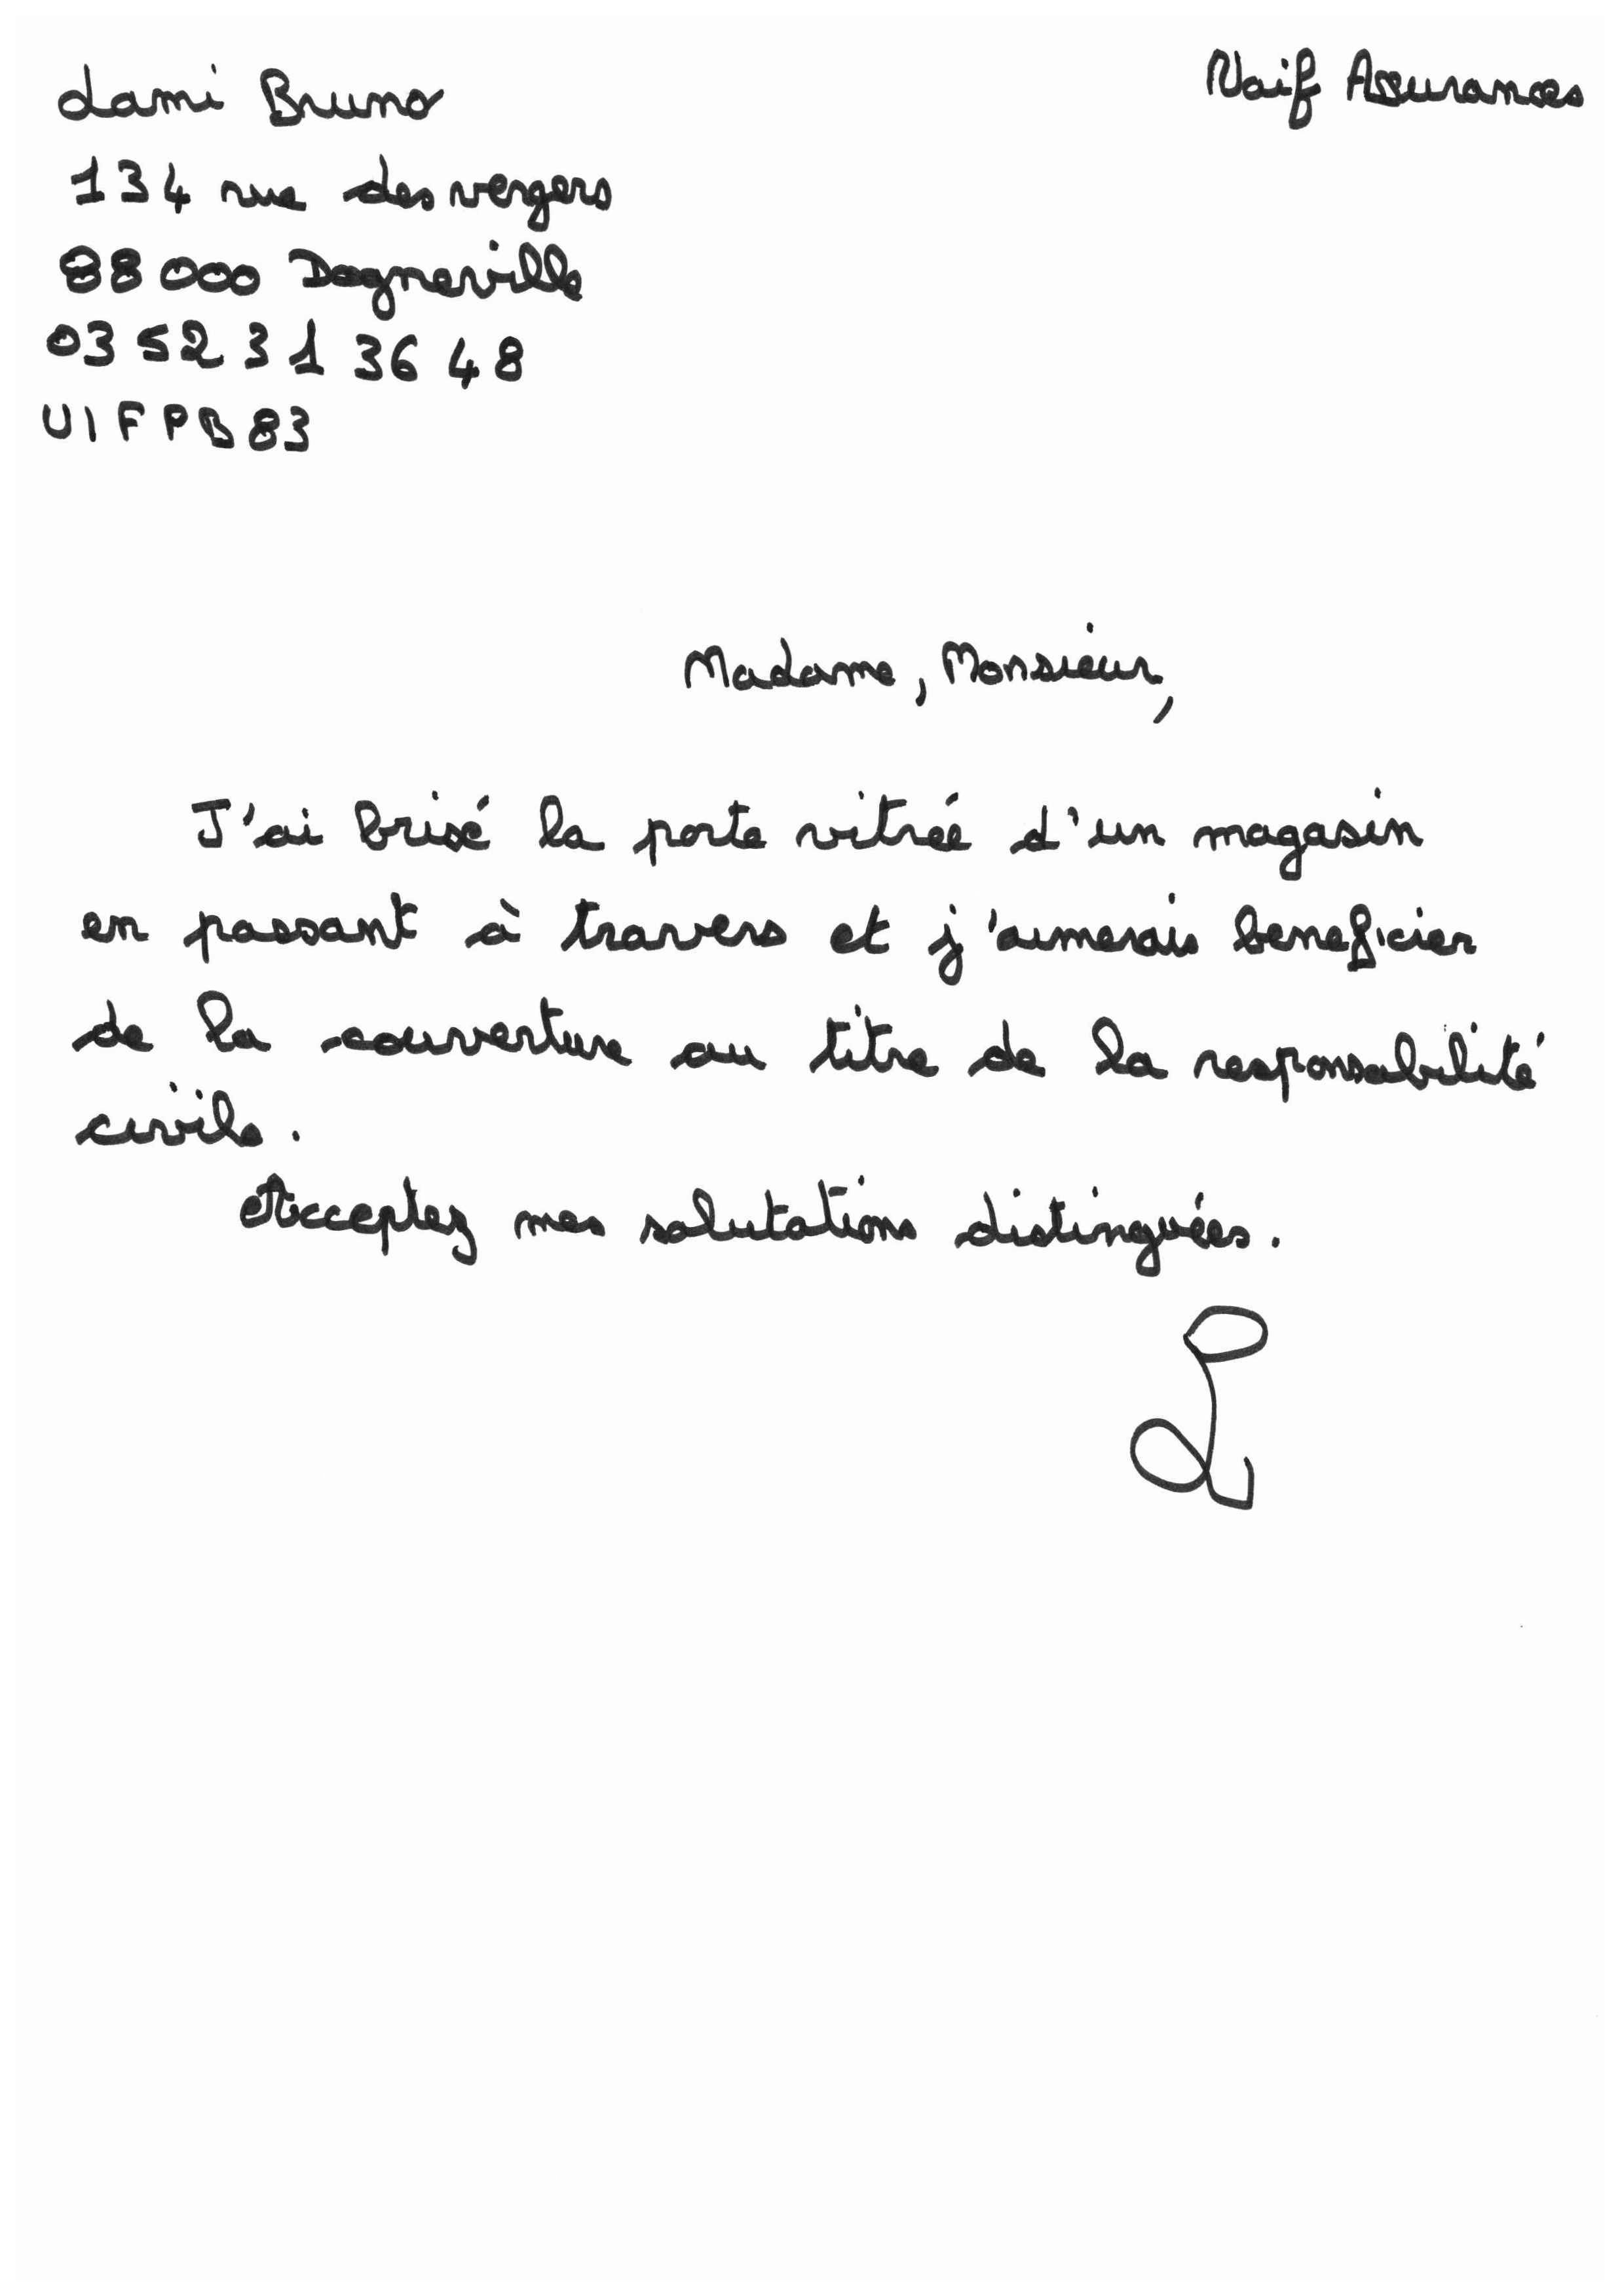 Lami Bruno
Naif Assurances
134 rue des vergers
88000 Dogneville
03 52 31 36 48
UIFPB83
Madame, Monsieur,
J'ai brisé la porte vitrée d'un magasin
en passant à travers et j'aimerais beneficier
de la couverture au titre de la responsabilité
civile.
Acceptez mes salutations distinguées.